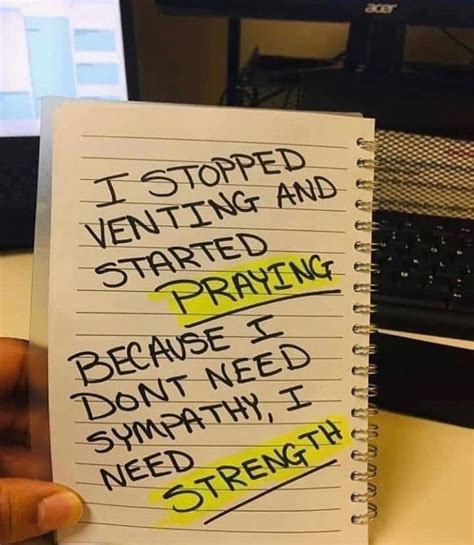 acer
I STOPPED
VENTING AND
STARTED
PRAYING
BECAUSE I
DONT NEED
SYMPATHY, I
NEED
STRENGTH